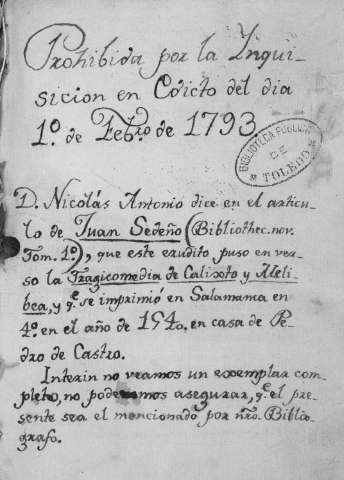 Prohibida por la Ynqui-
sicion en Edicto del dia
1º. de Febrº. de 1793.
BIBLIOTECA PÚBLICA
DE
TOLEDO
D. Nicolás Antonio dice en el articu-
lo de Juan Sedeño (Bibliothec. nov.
Tom. 1º), que este erudito, puso en ver-
so la Tragicomedia de Calixto y Meli-
bea, y q.e se imprimió en Salamama en
4º. en el año de 1540. en casa de Pe-
dro de Castro.
Interin no veamos un exemplar com-
pleto, no podemos asegurar, q.e el pre-
sente sea el mencionado por nro. Biblio-
grafo.